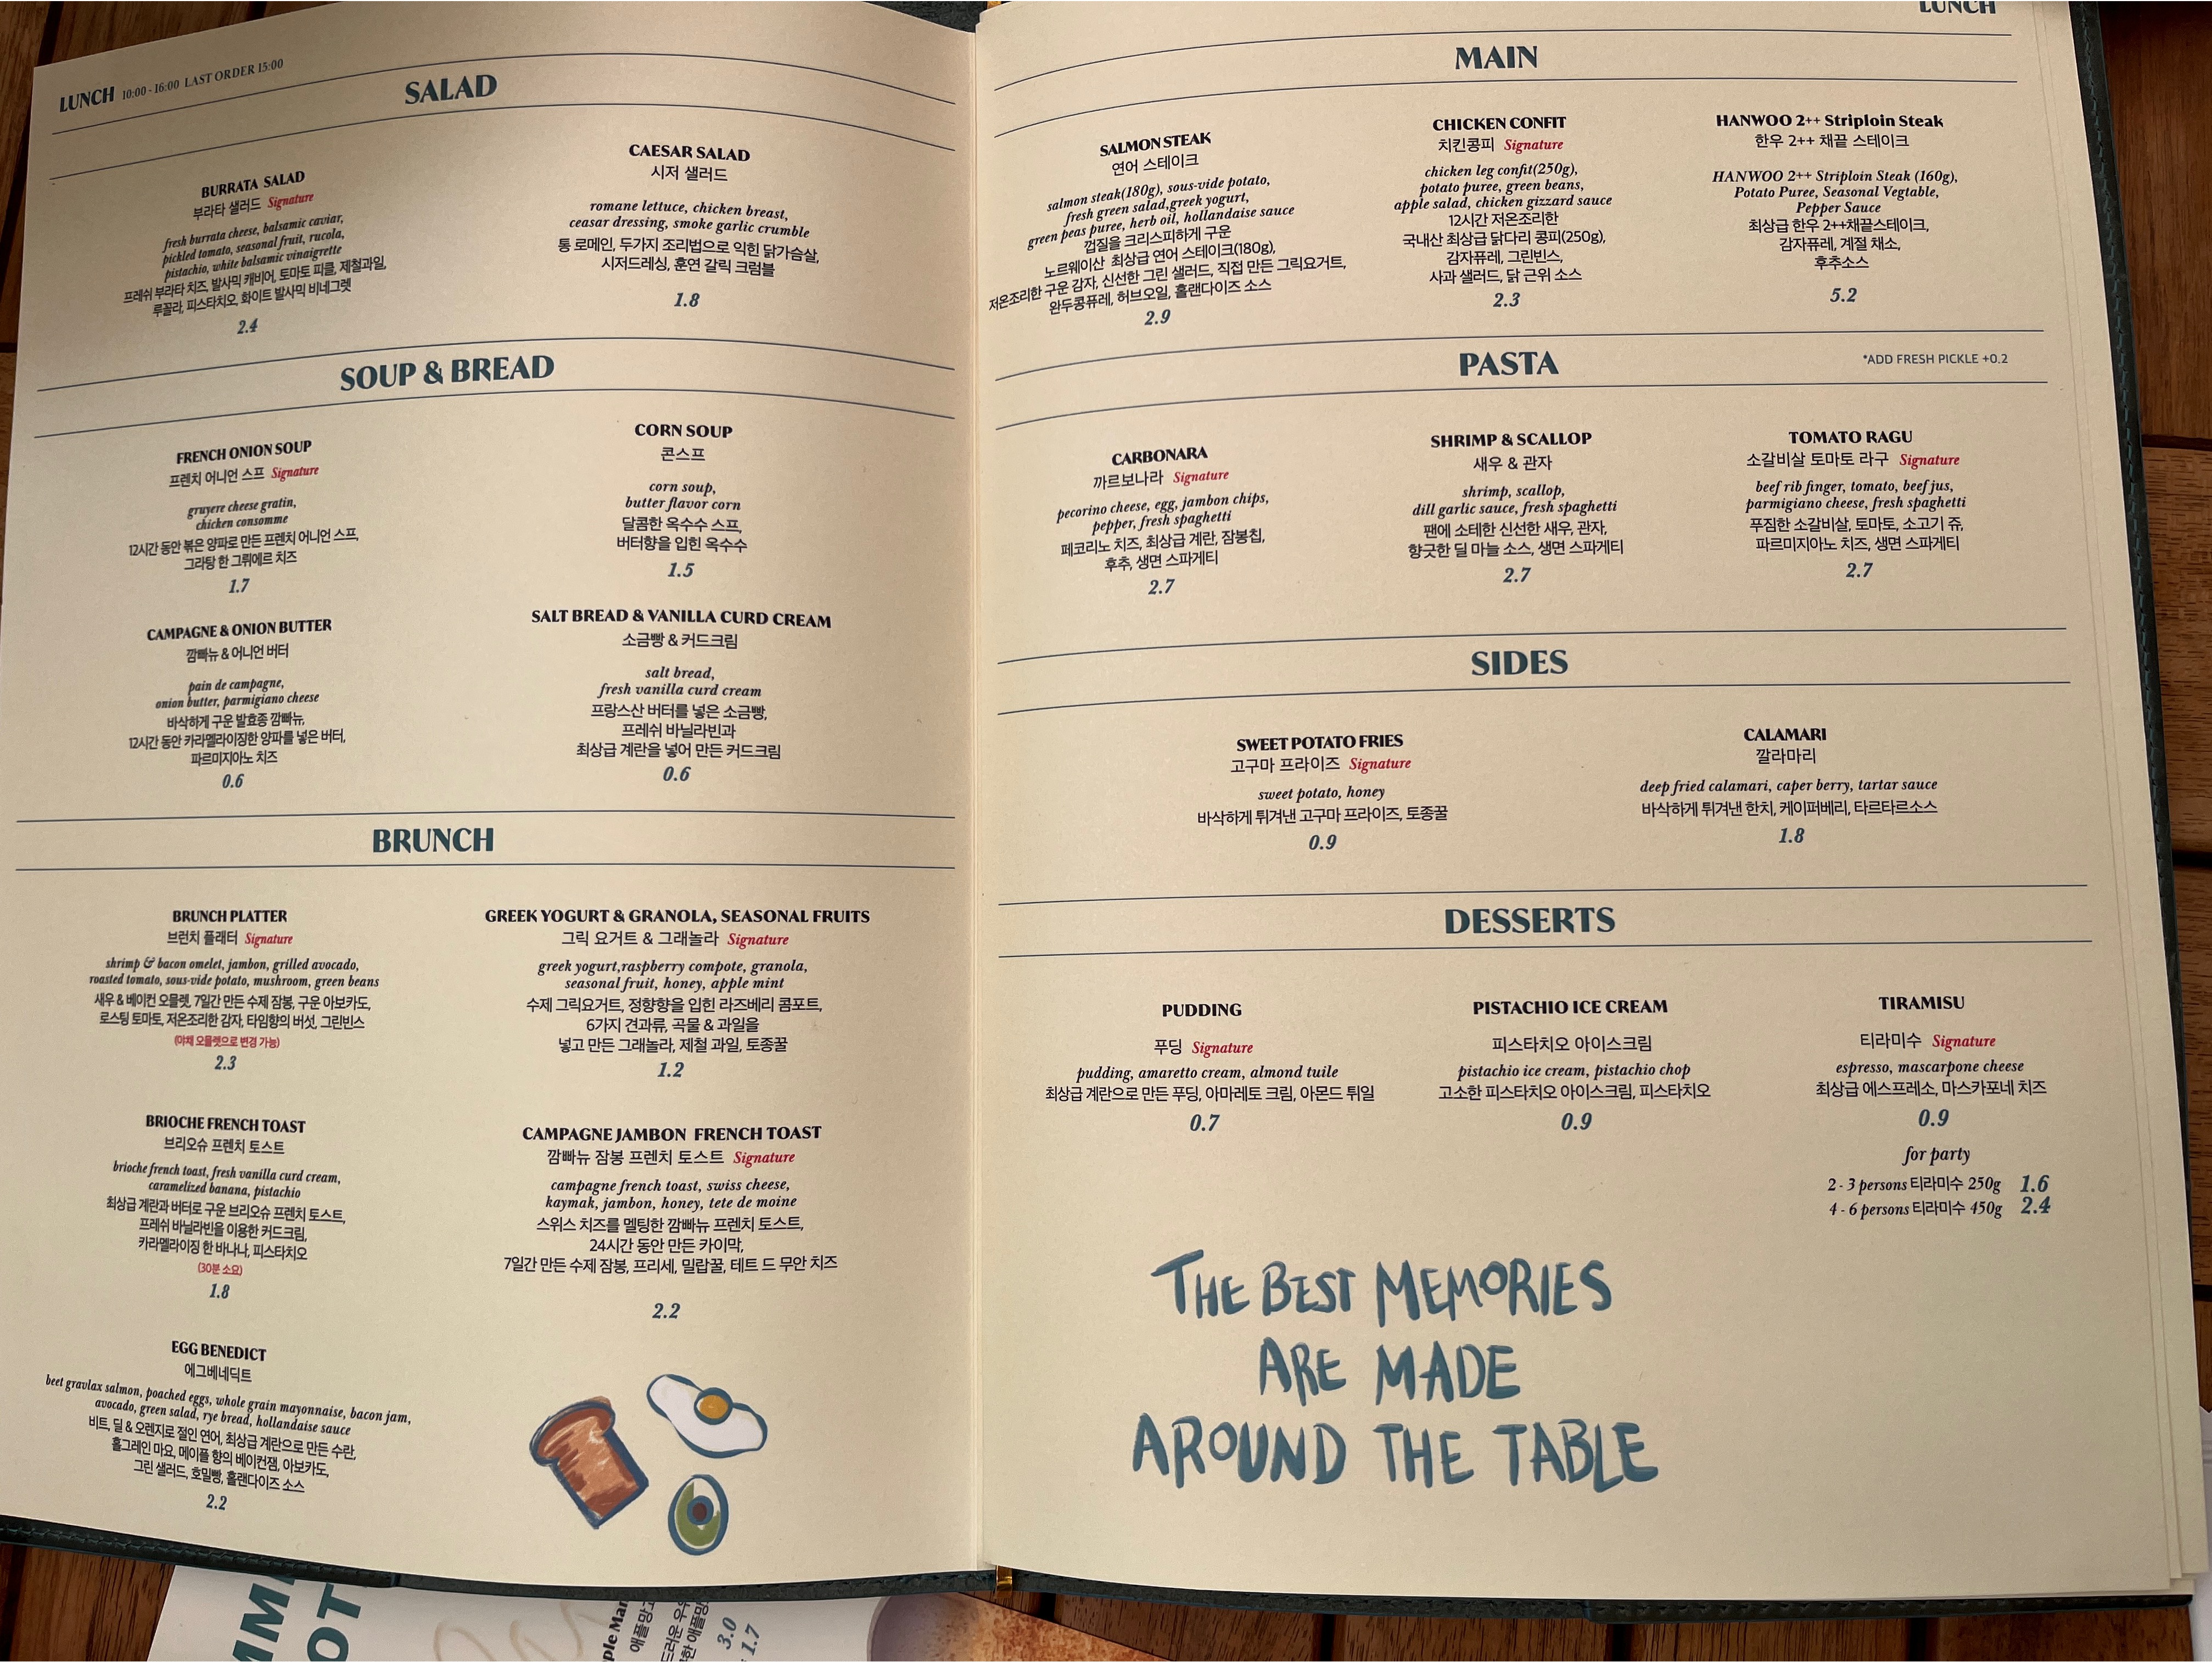 LUNCH 10:00 - 16:00 LAST ORDER 15:00
SALAD
BURRATA SALAD
부라타 샐러드 Signature
fresh burrata cheese, balsamic caviar,
pickled tomato, seasonal fruit, rucola,
pistachio, white balsamic vinaigrette
프레쉬 부라타 치즈, 발사믹 캐비어, 토마토 피클, 제철과일,
루꼴라, 피스타치오, 화이트 발사믹 비네그렛
2.4
CAESAR SALAD
시저 샐러드
romane lettuce, chicken breast,
ceasar dressing, smoke garlic crumble
통 로메인, 두가지 조리법으로 익힌 닭가슴살,
시저드레싱, 훈연 갈릭 크럼블
1.8
SOUP & BREAD
FRENCH ONION SOUP
프렌치 어니언 스프 Signature
gruyere cheese gratin,
chicken consomme
12시간 동안 볶은 양파로 만든 프렌치 어니언 스프,
그라탕 한 그뤼에르 치즈
1.7
CORN SOUP
콘스프
corn soup,
butter flavor corn
달콤한 옥수수 스프,
버터향을 입힌 옥수수
1.5
CAMPAGNE & ONION BUTTER
깜빠뉴 & 어니언 버터
pain de campagne,
onion butter, parmigiano cheese
바삭하게 구운 발효종 깜빠뉴,
12시간 동안 카라멜라이징한 양파를 넣은 버터,
파르미지아노 치즈
0.6
SALT BREAD & VANILLA CURD CREAM
소금빵 & 커드크림
salt bread,
fresh vanilla curd cream
프랑스산 버터를 넣은 소금빵,
프레쉬 바닐라빈과
최상급 계란을 넣어 만든 커드크림
0.6
BRUNCH
BRUNCH PLATTER
브런치 플래터 Signature
shrimp & bacon omelet, jambon, grilled avocado,
roasted tomato, sous-vide potato, mushroom, green beans
새우 & 베이컨 오믈렛, 7일간 만든 수제 잠봉, 구운 아보카도,
로스팅 토마토, 저온조리한 감자, 타임향의 버섯, 그린빈스
(야채 오믈렛으로 변경 가능)
2.3
GREEK YOGURT & GRANOLA, SEASONAL FRUITS
그릭 요거트 & 그래놀라 Signature
greek yogurt,raspberry compote, granola,
seasonal fruit, honey, apple mint
수제 그릭요거트, 정향향을 입힌 라즈베리 콤포트,
6가지 견과류, 곡물 & 과일을
넣고 만든 그래놀라, 제철 과일, 토종꿀
1.2
BRIOCHE FRENCH TOAST
브리오슈 프렌치 토스트
brioche french toast, fresh vanilla curd cream,
caramelized banana, pistachio
최상급 계란과 버터로 구운 브리오슈 프렌치 토스트,
프레쉬 바닐라빈을 이용한 커드크림,
카라멜라이징 한 바나나, 피스타치오
(30분 소요)
1.8
CAMPAGNE JAMBON FRENCH TOAST
깜빠뉴 잠봉 프렌치 토스트 Signature
campagne french toast, swiss cheese,
kaymak, jambon, honey, tete de moine
스위스 치즈를 멜팅한 깜빠뉴 프렌치 토스트,
24시간 동안 만든 카이막,
7일간 만든 수제 잠봉, 프리세, 밀랍꿀, 테트 드 무안 치즈
2.2
EGG BENEDICT
에그베네딕트
beet gravlax salmon, poached eggs, whole grain mayonnaise, bacon jam,
avocado, green salad, rye bread, hollandaise sauce
비트, 딜 & 오렌지로 절인 연어, 최상급 계란으로 만든 수란,
홀그레인 마요, 메이플 향의 베이컨잼, 아보카도,
그린 샐러드, 호밀빵, 홀랜다이즈 소스
2.2
LUNCH
MAIN
SALMON STEAK
연어 스테이크
salmon steak(180g), sous-vide potato,
fresh green salad,greek yogurt,
green peas puree, herb oil, hollandaise sauce
껍질을 크리스피하게 구운
노르웨이산 최상급 연어 스테이크(180g),
저온조리한 구운 감자, 신선한 그린 샐러드, 직접 만든 그릭요거트,
완두콩퓨레, 허브오일, 홀랜다이즈 소스
2.9
CHICKEN CONFIT
치킨콩피 Signature
chicken leg confit(250g),
potato puree, green beans,
apple salad, chicken gizzard sauce
12시간 저온조리한
국내산 최상급 닭다리 콩피(250g),
감자퓨레, 그린빈스,
사과 샐러드, 닭 근위 소스
2.3
HANWOO 2++ Striploin Steak
한우 2++ 채끝 스테이크
HANWOO 2++ Striploin Steak (160g),
Potato Puree, Seasonal Vegtable,
Pepper Sauce
최상급 한우 2++채끝스테이크,
감자퓨레, 계절 채소,
후추소스
5.2
PASTA
*ADD FRESH PICKLE +0.2
CARBONARA
까르보나라 Signature
pecorino cheese, egg, jambon chips,
pepper, fresh spaghetti
페코리노 치즈, 최상급 계란, 잠봉칩,
후추, 생면 스파게티
2.7
SHRIMP & SCALLOP
새우 & 관자
shrimp, scallop,
dill garlic sauce, fresh spaghetti
팬에 소테한 신선한 새우, 관자,
향긋한 딜 마늘 소스, 생면 스파게티
2.7
TOMATO RAGU
소갈비살 토마토 라구 Signature
beef rib finger, tomato, beef jus,
parmigiano cheese, fresh spaghetti
푸짐한 소갈비살, 토마토, 소고기 쥬,
파르미지아노 치즈, 생면 스파게티
2.7
SIDES
SWEET POTATO FRIES
고구마 프라이즈 Signature
sweet potato, honey
바삭하게 튀겨낸 고구마 프라이즈, 토종꿀
0.9
CALAMARI
깔라마리
deep fried calamari, caper berry, tartar sauce
바삭하게 튀겨낸 한치, 케이퍼베리, 타르타르소스
1.8
DESSERTS
PUDDING
푸딩 Signature
pudding, amaretto cream, almond tuile
최상급 계란으로 만든 푸딩, 아마레토 크림, 아몬드 튀일
0.7
PISTACHIO ICE CREAM
피스타치오 아이스크림
pistachio ice cream, pistachio chop
고소한 피스타치오 아이스크림, 피스타치오
0.9
TIRAMISU
티라미수 Signature
espresso, mascarpone cheese
최상급 에스프레소, 마스카포네 치즈
0.9
for party
2 - 3 persons 티라미수 250g 1.6
4 - 6 persons 티라미수 450g 2.4
THE BEST MEMORIES
ARE MADE
AROUND THE TABLE
3.0
1.7